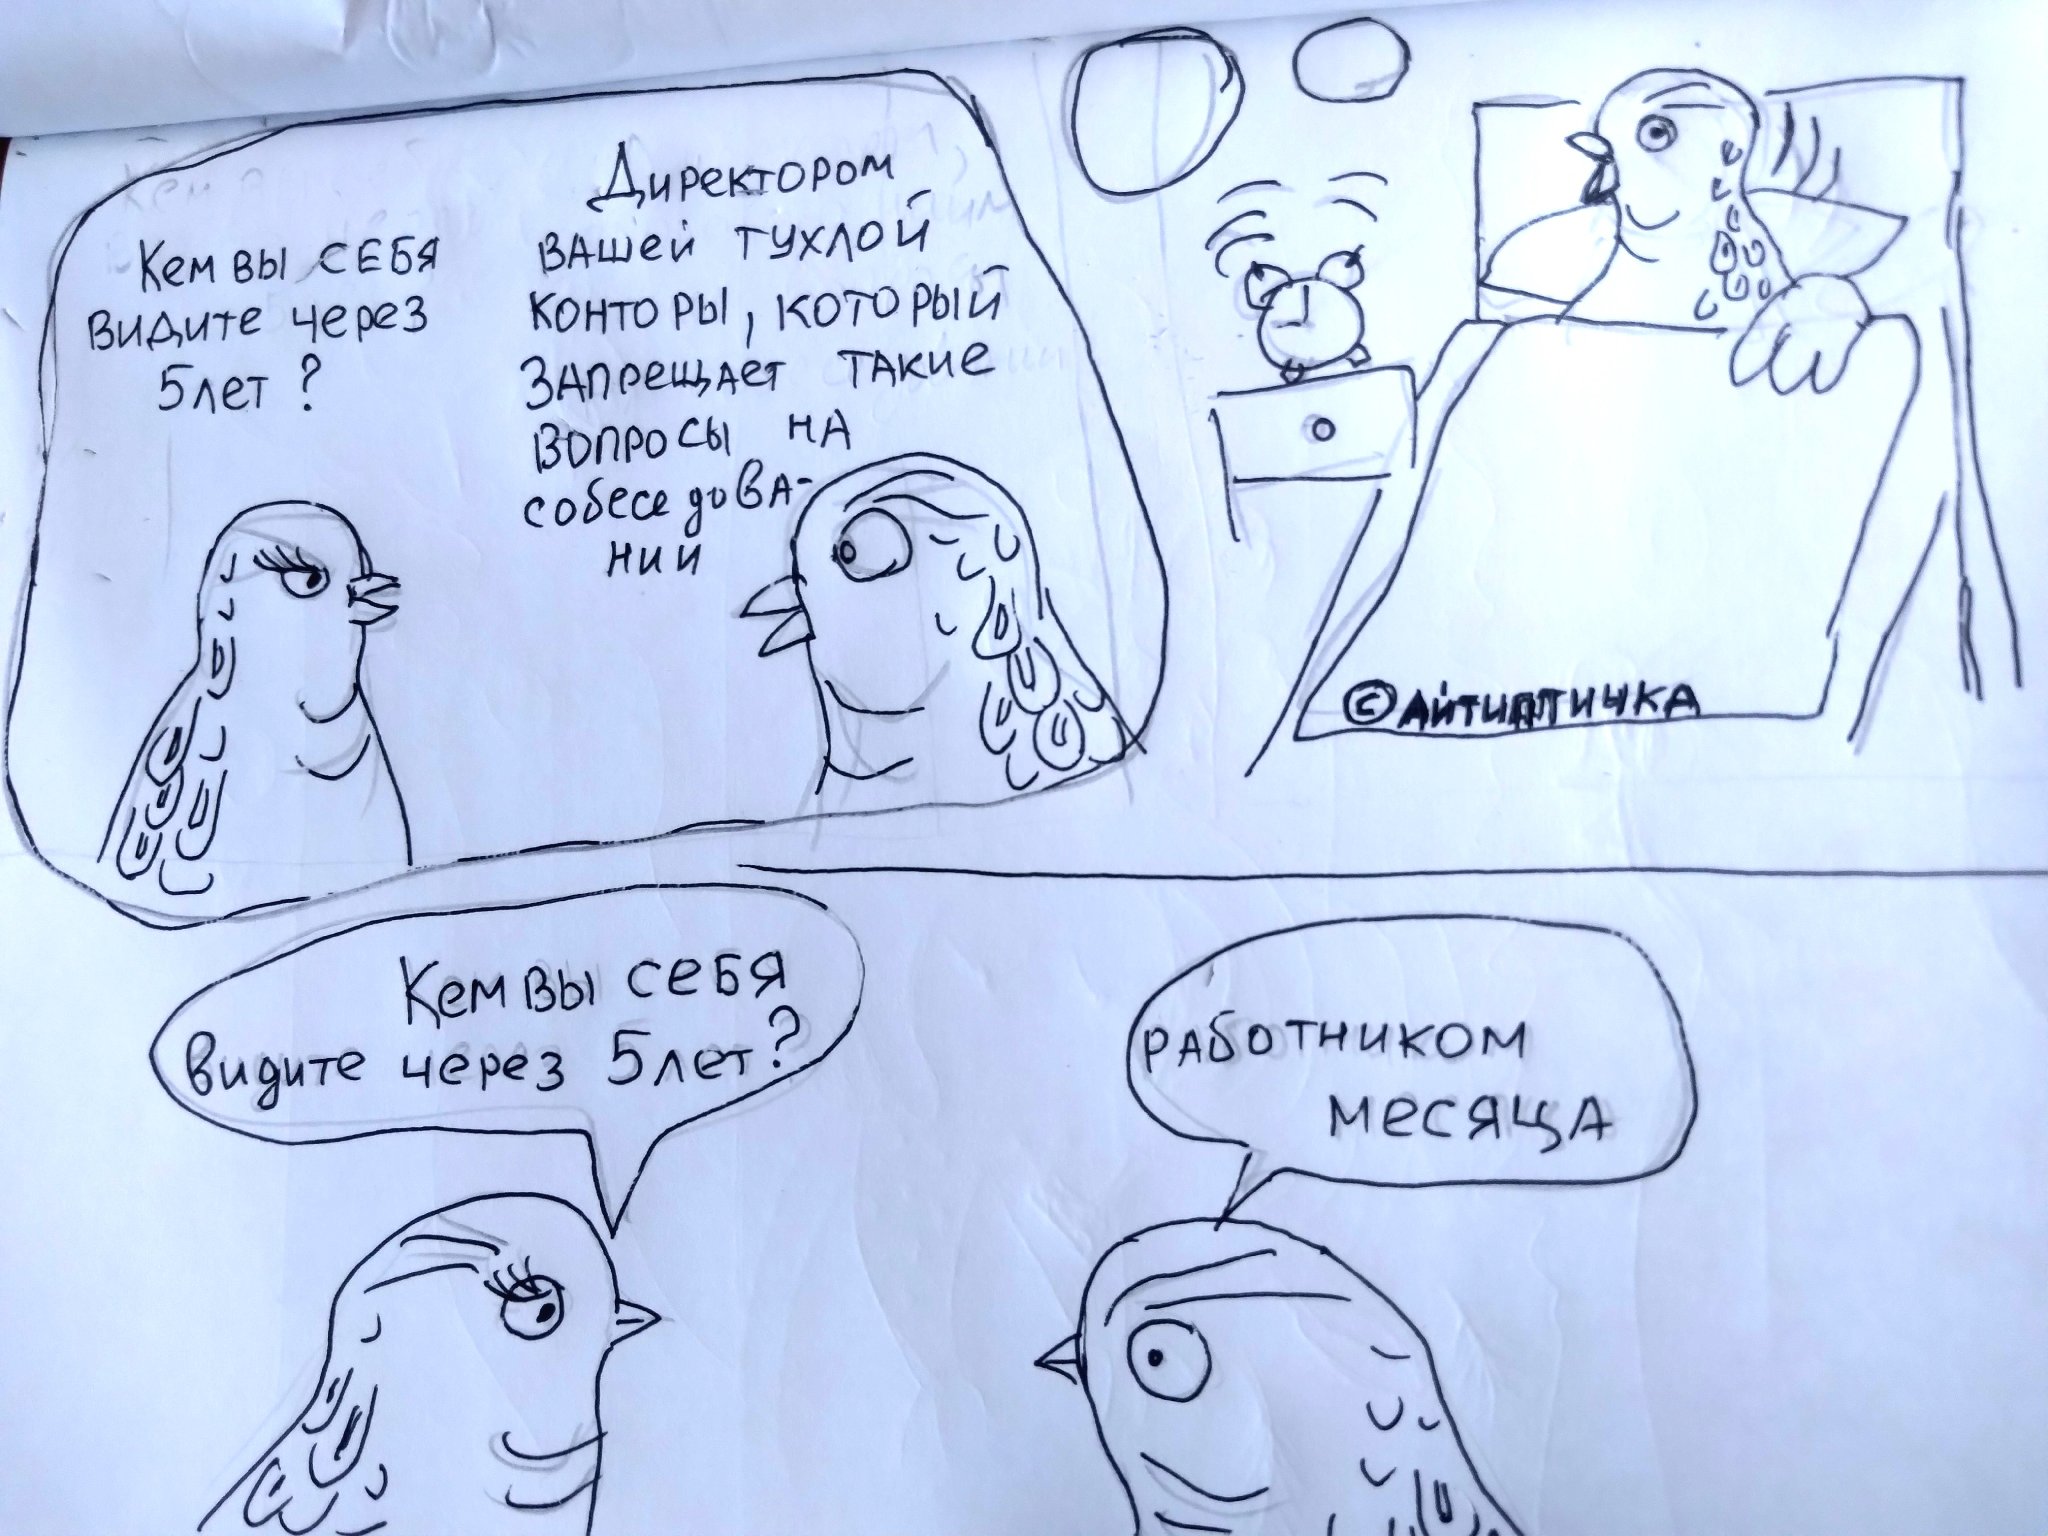 Кем вы себя
видите через
5 лет?
Директором
вашей тухлой
конторы, который
запрещает такие
вопросы на
собеседова-
нии
© Айтиптичка
Кем вы себя
видите через 5 лет?
работником
месяца